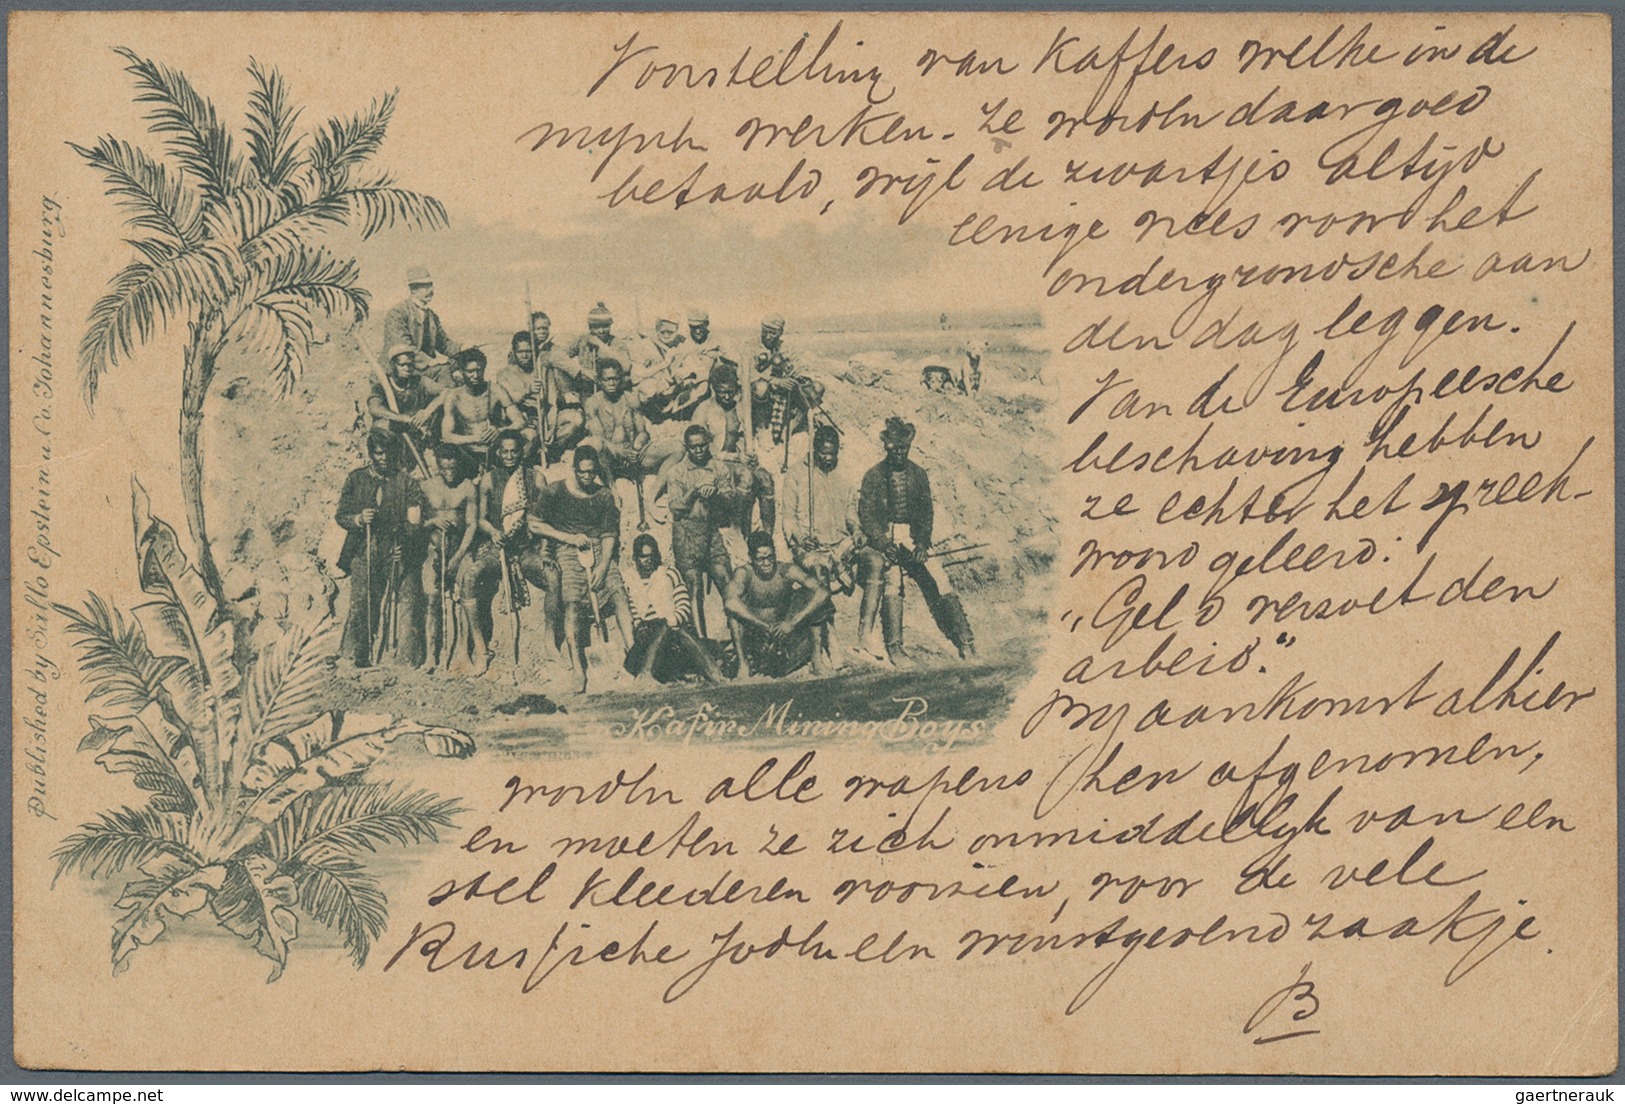 Voorstelling van Kaffers welke in de
mynen werken. Ze worden daar goed
betaald, wyl de zwartjes altijd
eenige vrees voor het
ondergrondsche aan
den dag leggen.
Van de Europeesche
beschaving hebben
ze echter het spreek-
woord geleerd:
"Geld verzoet den
arbeid."
By aankomst alhier
worden alle wapens hen afgenomen,
en moeten ze zich onmiddellyk van een
stel kleederen voorzien, voor de vele
Russische Joden een winstgevend zaakje.
B
Kafir Mining Boys
Published by Sallo Epstein & Co. Johannesburg
gaertnerauk